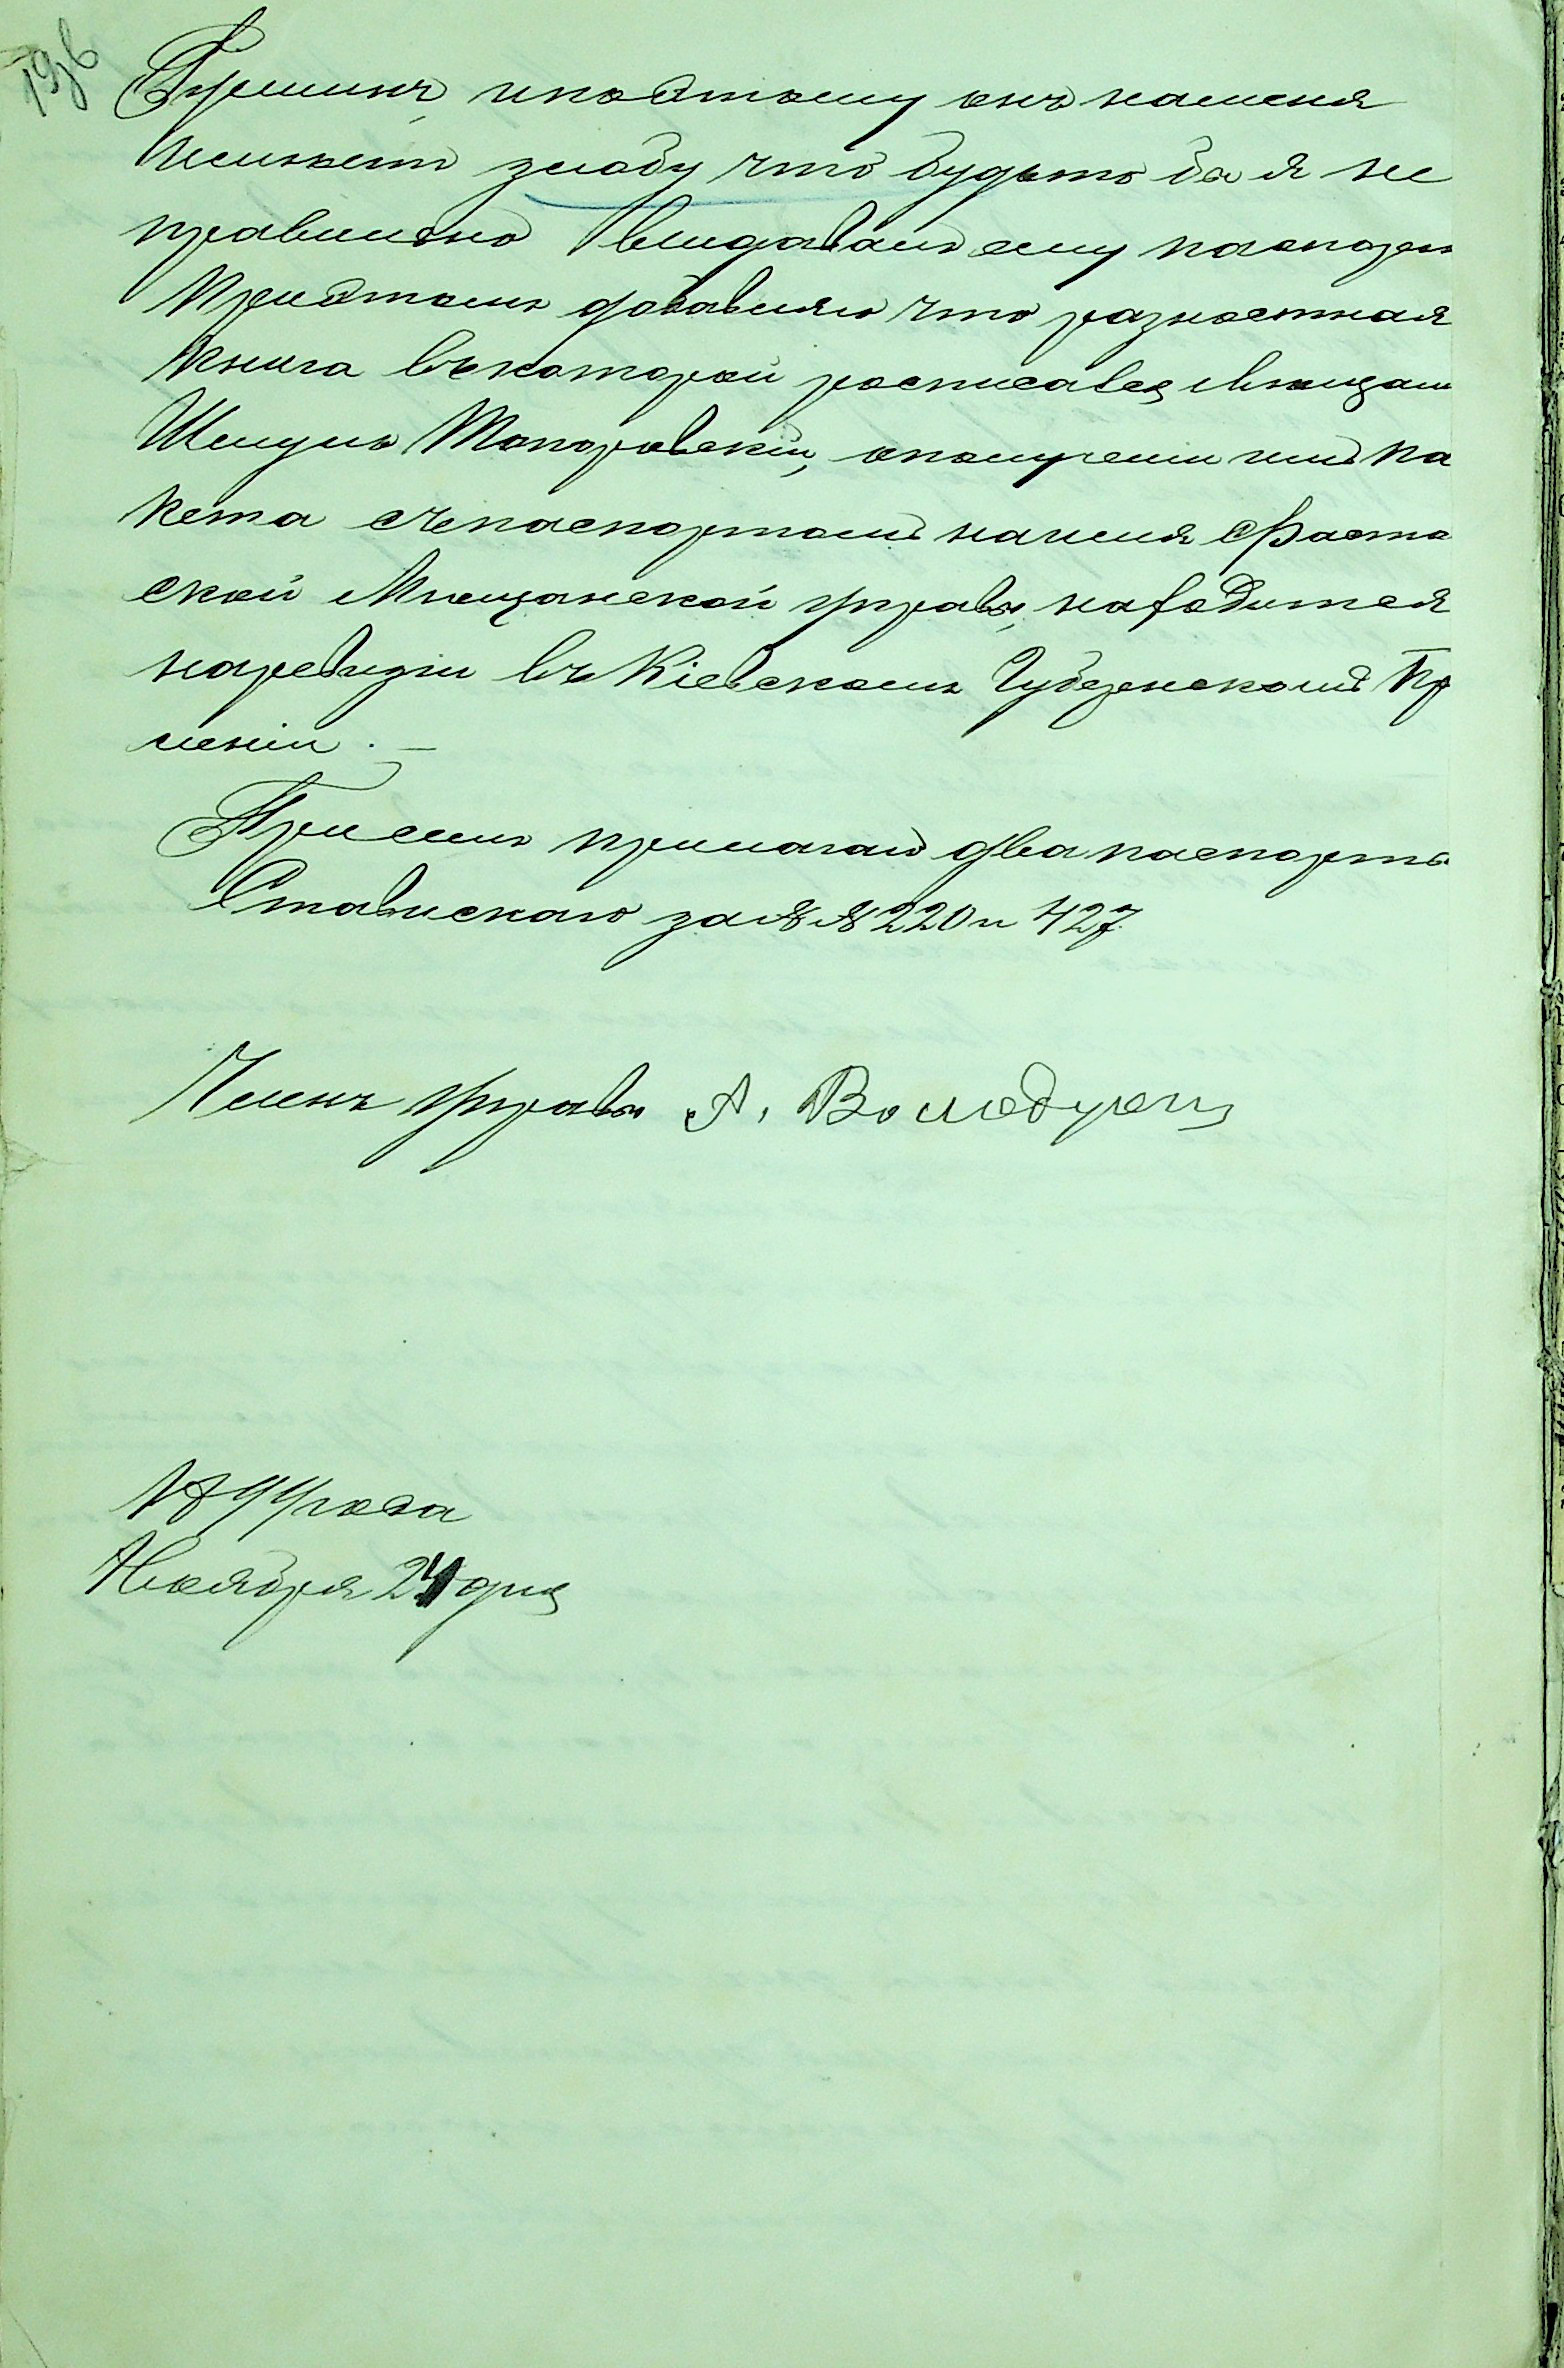 196
и поэтому онъ на меня
злобу что будьто бы я не
правильно выдавалъ ему паспорт
При этомъ добавляю что разностная
книга въ которой росписався мѣщан
Шмуль Топоровскій, о полученіи имъ па
кета съ паспортомъ на имя Фасто
ской Мѣщанской управы, находится
на ревизіи въ Кіевскомъ Губернскомъ Пр
леніи. —
При семъ прилагаю два паспорты
Ставискаго за №№ 220 и 427
Членъ управы А. Володурец
1899 года
Ноября 24 дня